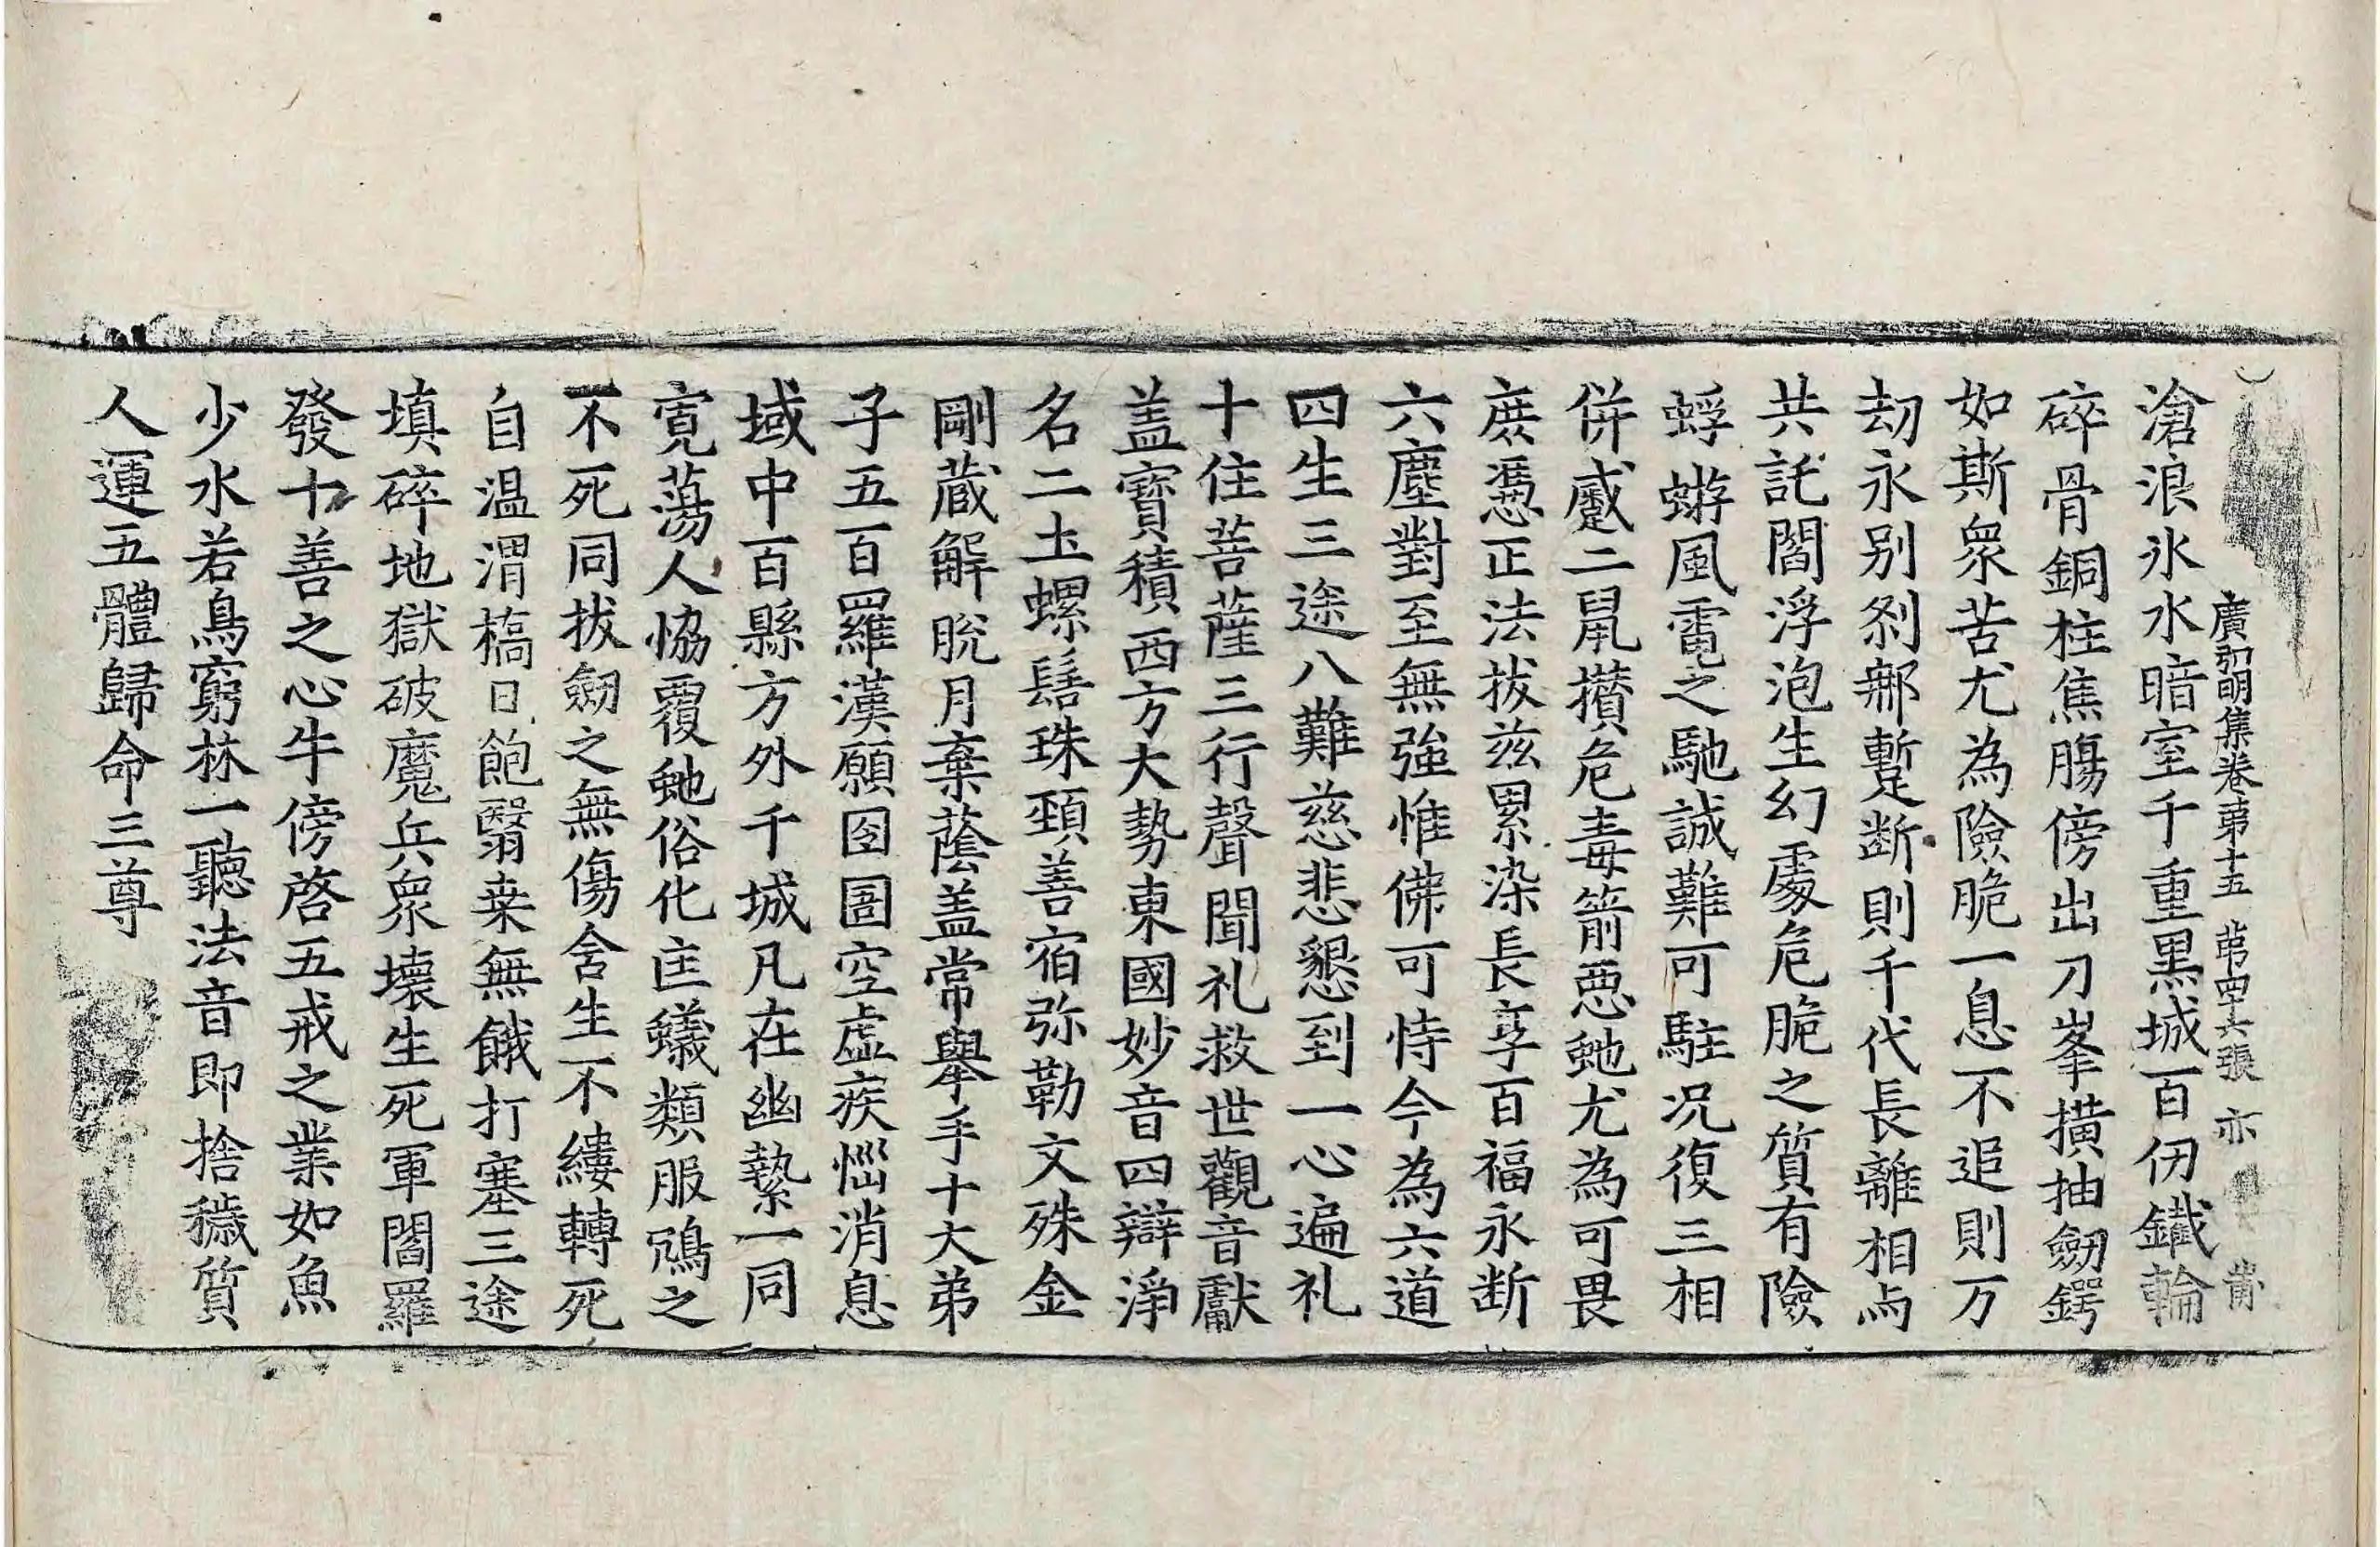 廣弘明集卷第十五 第四十六張 亦
滄浪氷水暗室千重黒城百仞鐵輪
碎骨銅柱焦膓傍出刀峯横抽劒鍔
如斯衆苦尤為險脆一息不追則万
劫永别刹那蹔断則千代長離相与
共託閻浮泡生幻處危脆之質有險
蜉蝣風電之馳誠難可駐况復三相
併慼二鼠攅危毒箭惡虵尤為可畏
庶憑正法拔兹累染長享百福永断
六塵對至無強惟佛可恃今為六道
四生三途八難慈悲懇到一心遍礼
十住菩薩三行聲聞礼救世觀音獻
盖寳積西方大勢東國妙音四辯淨
名二土螺髻珠頚善宿弥勒文殊金
剛蔵解脫月棄蔭盖常舉手十大弟
子五百羅漢願囹圄空虚疾惱消息
域中百縣方外千城凡在幽縶一同
寛蕩人恊覆虵俗化㐀蟻類服鴆之
不死同拔劒之無傷舍生不縷轉死
自温渭槁日飽翳桒無餓打塞三途
填碎地獄破魔兵衆壞生死軍閻羅
發十善之心牛傍啓五戒之業如魚
少水若鳥窮林一聽法音即捨穢質
人運五體歸命三尊